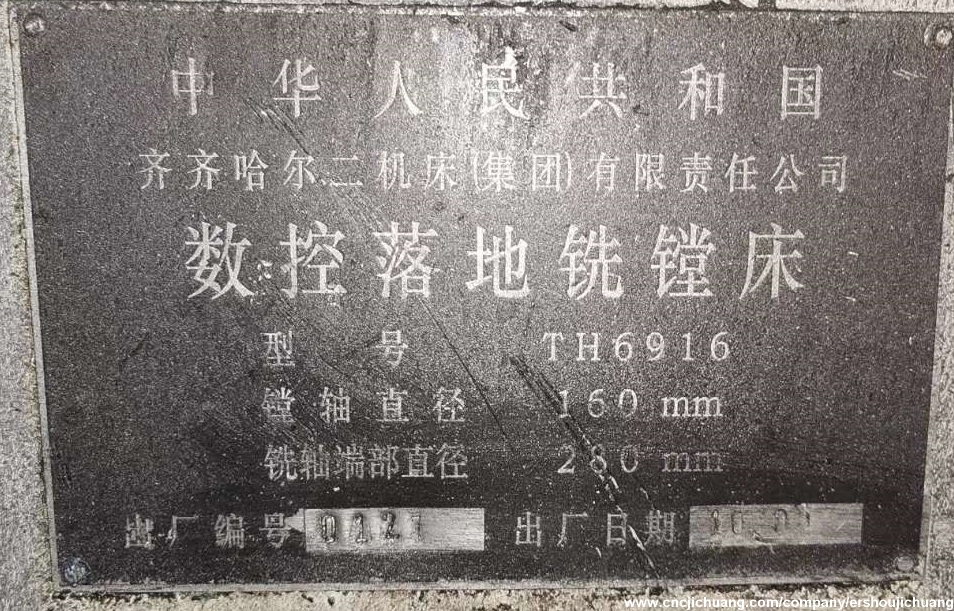 中华人民共和国
齐齐哈尔二机床(集团)有限责任公司
数控落地铣镗床
型号 TH6916
镗轴直径 160 mm
铣轴端部直径 280 mm
出厂编号 出厂日期
www.cncjichuang.com/company/ershoujichuang